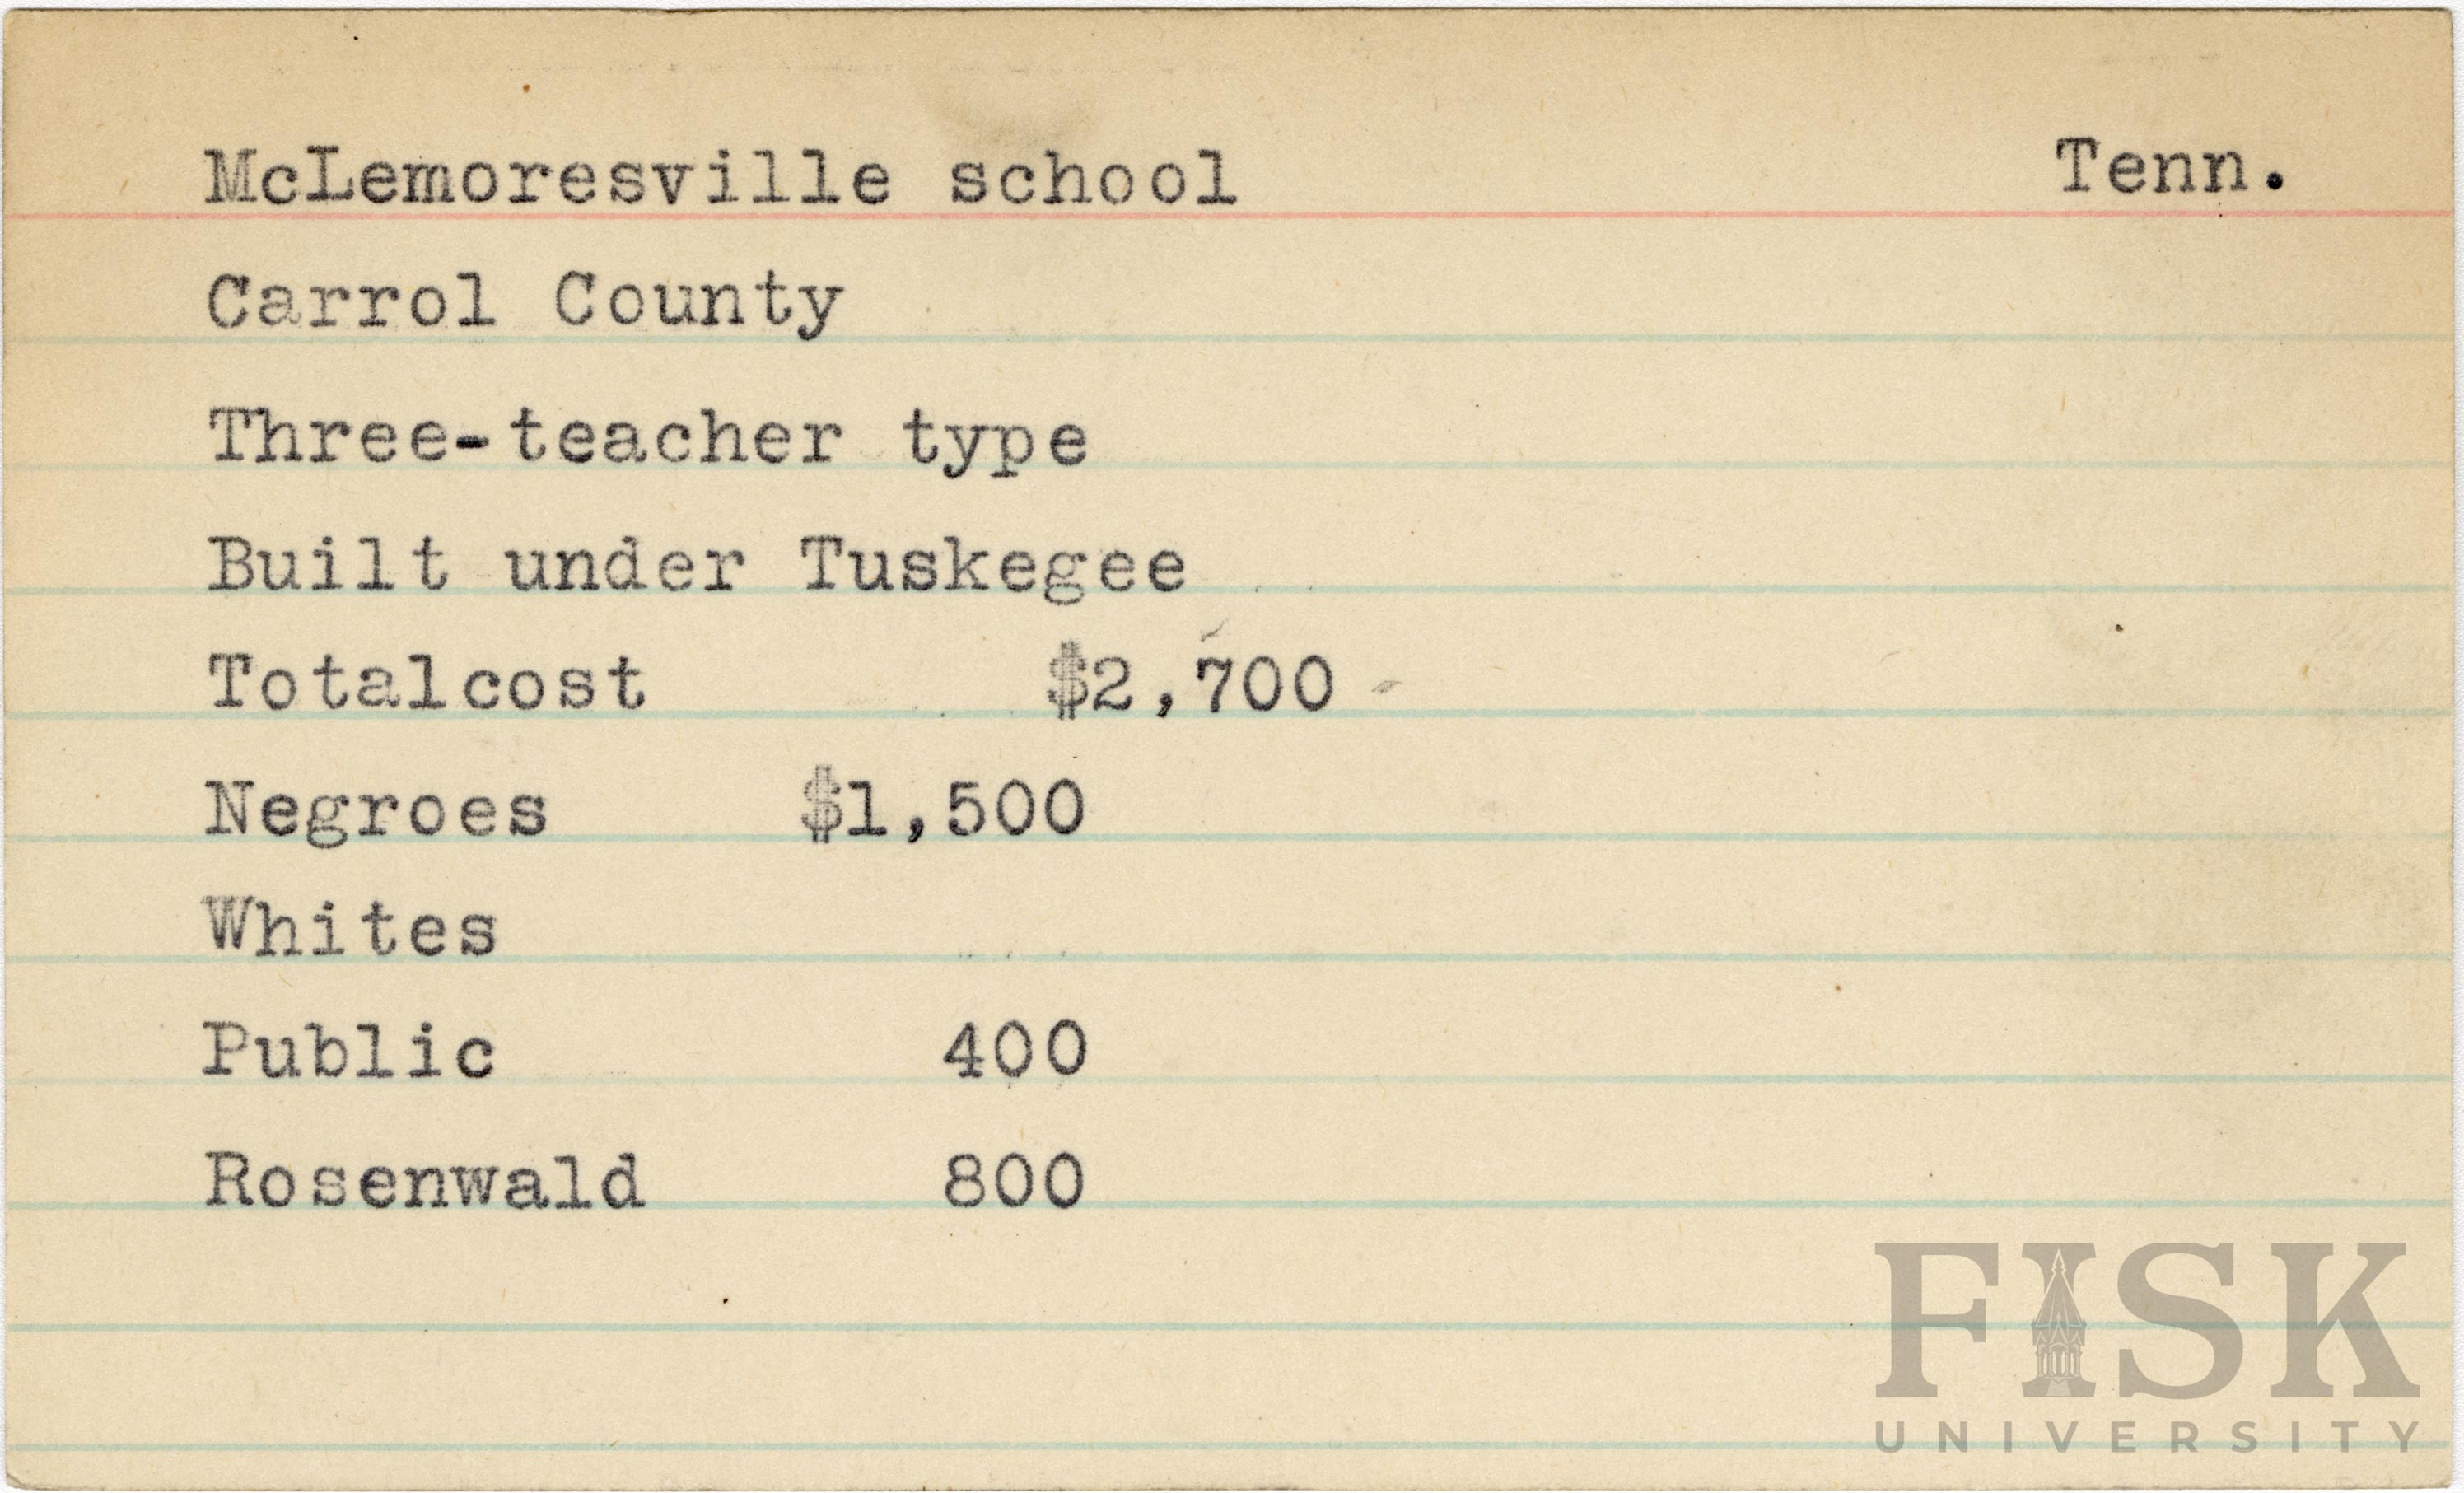 McLemoresville school Tenn.
Carrol County
Three-teacher type
Built under Tuskegee
Totalcost $2,700
Negroes $1,500
Whites
Public 400
Rosenwald 800
FISK
UNIVERSITY